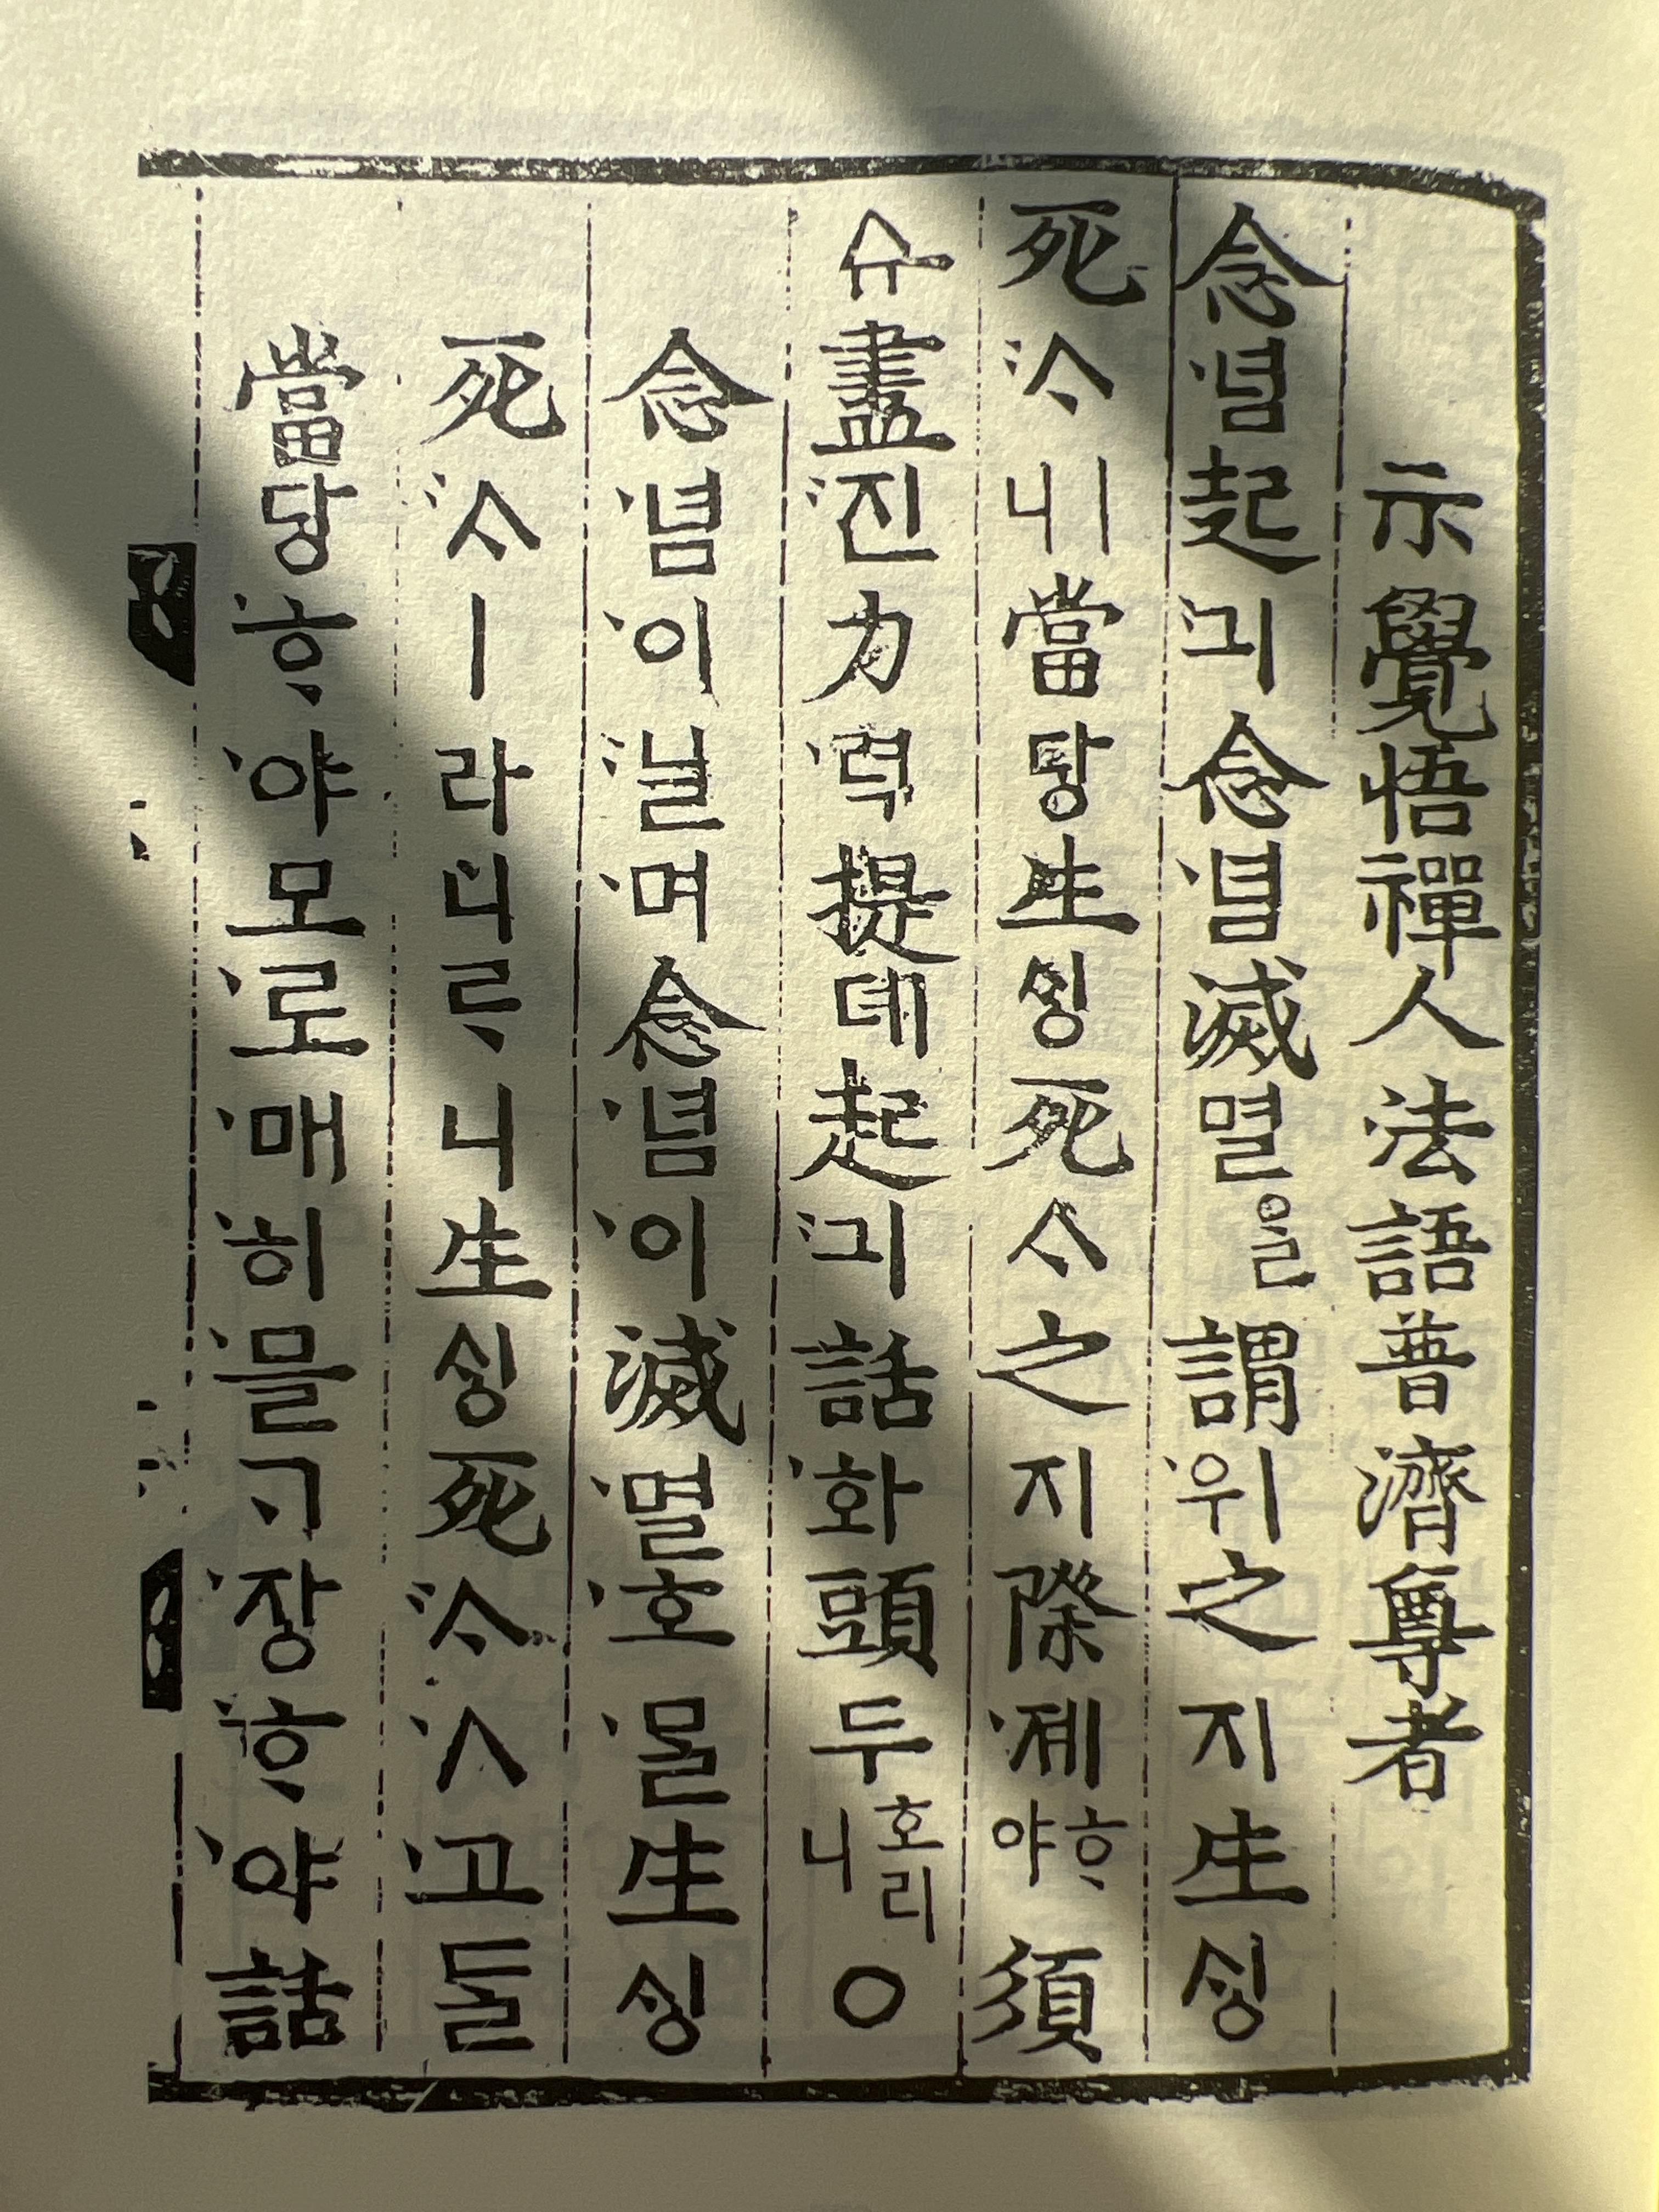 示覺悟禪人法語普濟尊者
念념起긔念념滅멸을謂위之지生ᄉᆡᆼ
死ᄉᆞㅣ니當당生ᄉᆡᆼ死ᄉᆞ之지際졔ᄒᆞ야須
슈盡진力력提뎨起긔話화頭두호리니○
念념이닐며念념이滅멸호몰生ᄉᆡᆼ
死ᄉᆞㅣ라니ᄅᆞ니生ᄉᆡᆼ死ᄉᆞㅅ고돌
當당ᄒᆞ야모로매히믈ᄀᆞ장ᄒᆞ야話